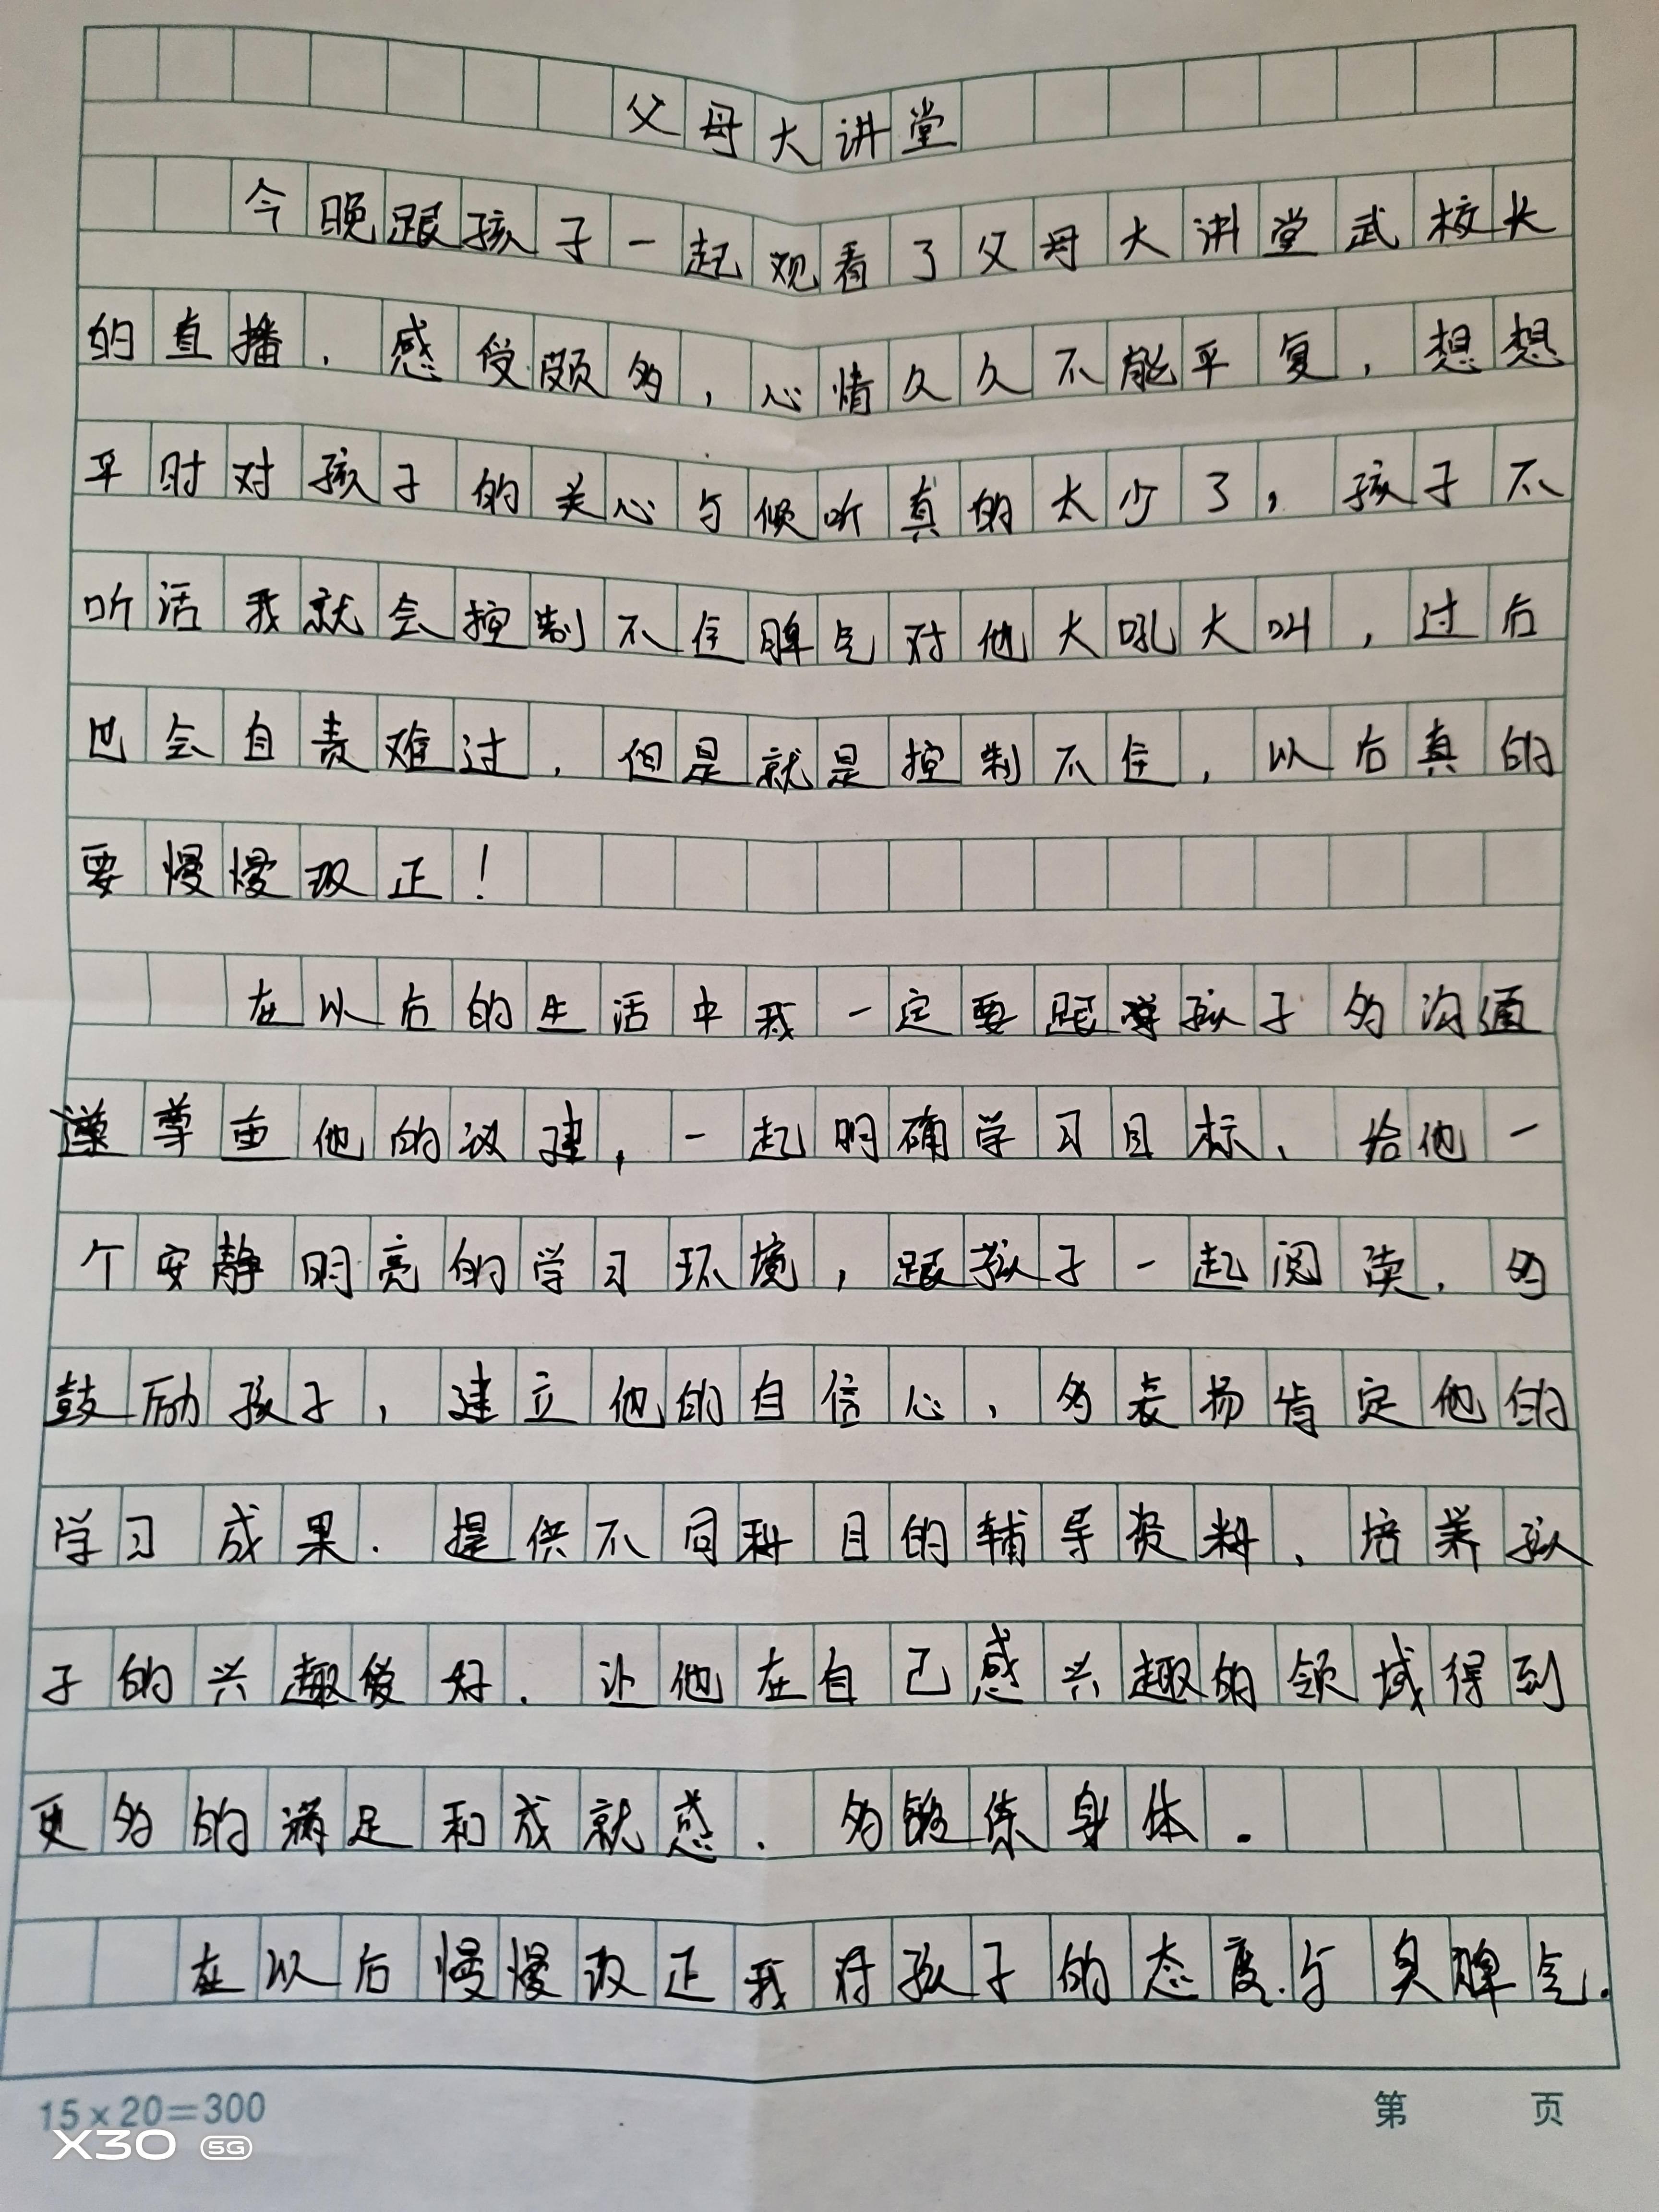 父母大讲堂
今晚跟孩子一起观看了父母大讲堂武校长
的直播，感受颇多，心情久久不能平复，想想
平时对孩子的关心与倾听真的太少了，孩子不
听话我就会控制不住脾气对他大吼大叫，过后
也会自责难过，但是就是控制不住，以后真的
要慢慢改正！
在以后的生活中我一定要跟孩子多沟通
尊重他的议建，一起明确学习目标、给他一
个安静明亮的学习环境，跟孩子一起阅读，多
鼓励孩子，建立他的自信心，多表扬肯定他的
学习成果．提供不同科目的辅导资料、培养孩
子的兴趣爱好．让他在自己感兴趣的领域得到
更多的满足和成就感．多锻练身体．
在以后慢慢改正我对孩子的态度与臭脾气．
15×20＝300
第 页
X30 5G